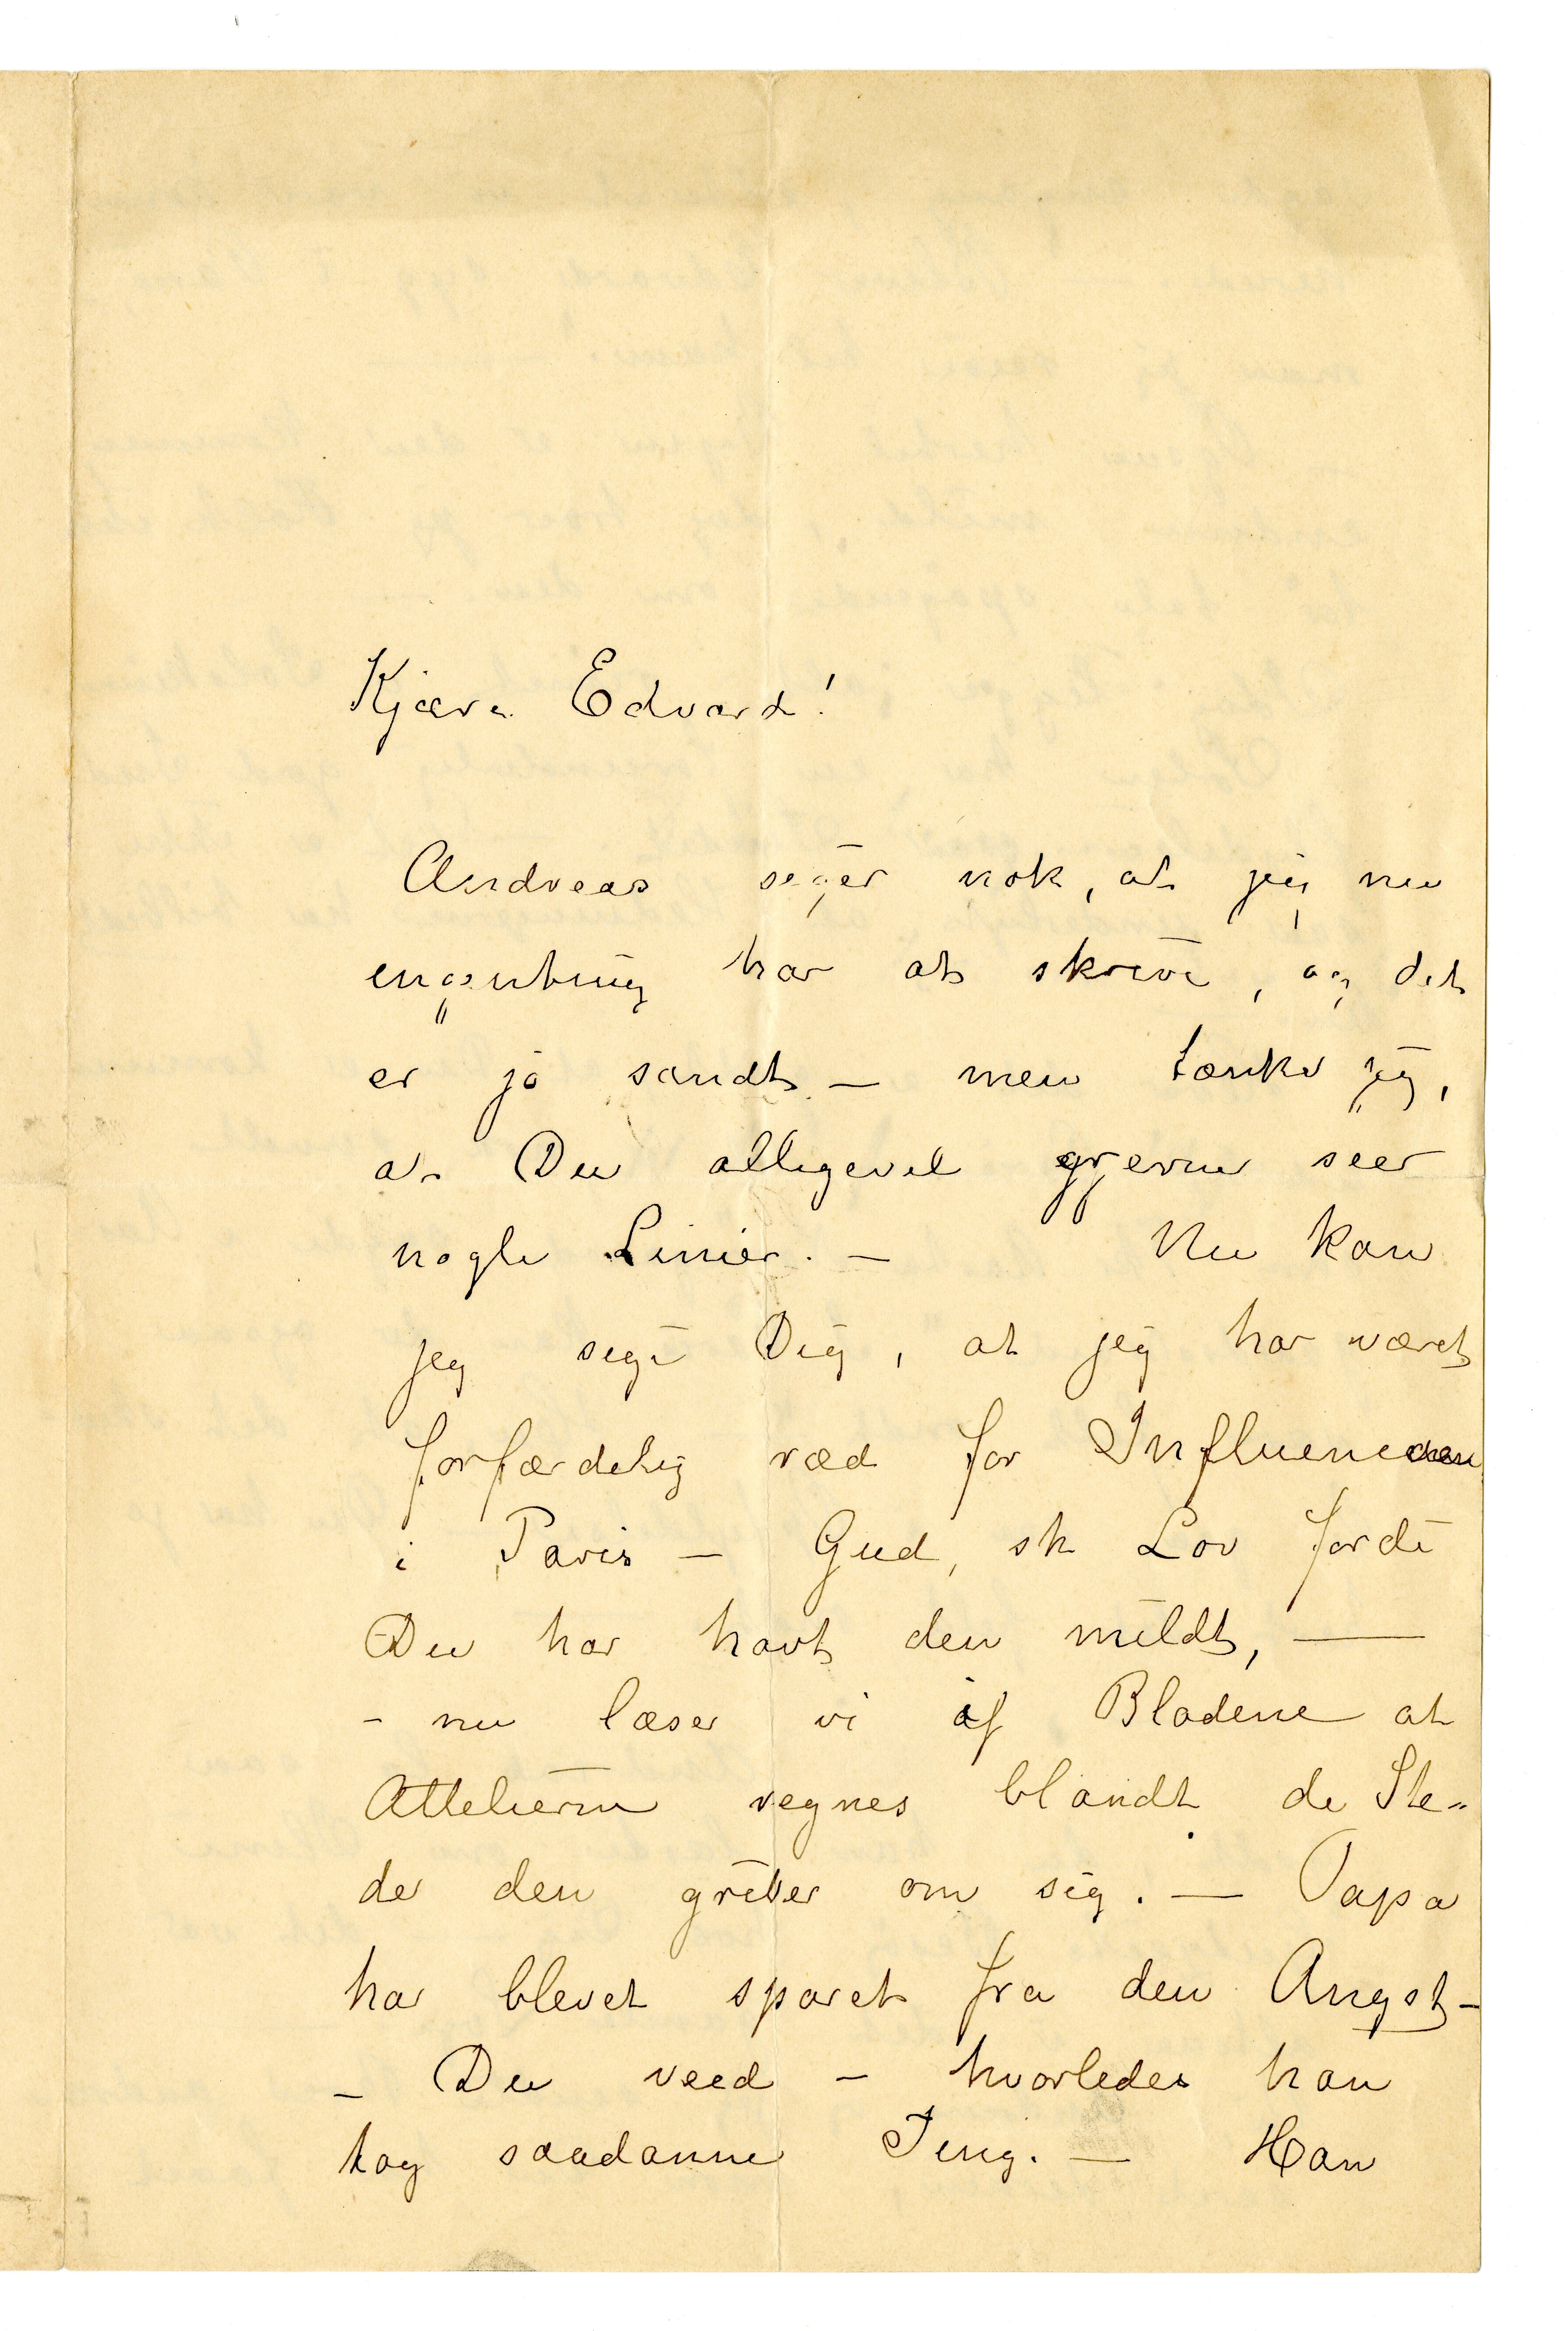 Kjære Edvard!
Andreas siger nok, at jeg nu
ingenting har at skrive, og det
er jo sandt — men tænker jeg,
at Du alligevel gjerne seer
nogle Linier. — Nu kan
jeg sige Dig, at jeg har været
forfærdelig ræd for Influencaen
i Paris — Gud, sk Lov fordi
Du har havt den mildt, —
- nu læser vi af Bladene at
Attelierne regnes blandt de Ste-
der den griber om sig. — Papa
har blevet sparet fra den Angst -
- Du veed - hvorledes han
tog saadanne Ting. — Han